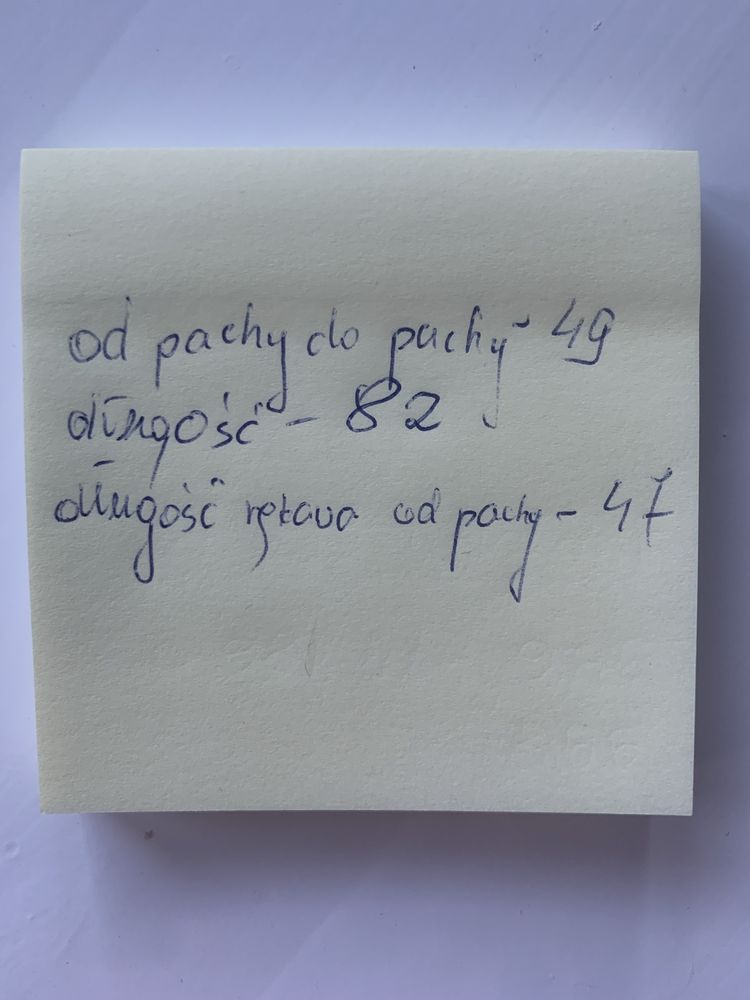 od pachy do pachy - 49
długość - 82
długość rękawa od pachy - 47